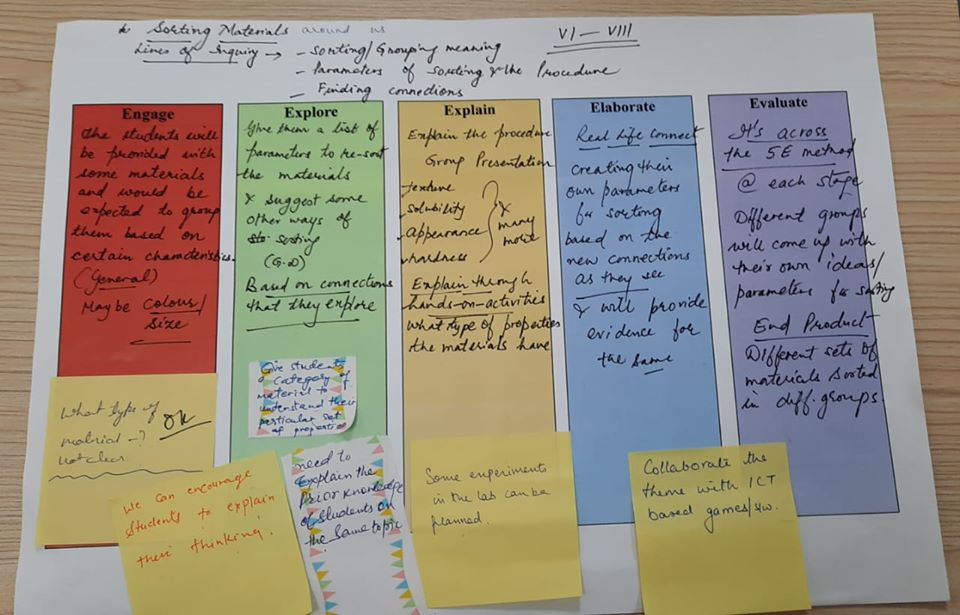 * Sorting Materials around us
VI – VIII
Lines of Inquiry → – Sorting/Grouping meaning
– Parameters of Sorting & the Procedure
– Finding connections
Engage
The students will
be provided with
some materials
and would be
expected to group
them based on
certain characteristics.
(General)
Maybe colour/
Size
What type of
material –?
not clear
We can encourage
students to explain
their thinking.
Explore
Give them a list of
parameters to re-sort
the materials
& suggest some
other ways of
sorting
(G.D)
Based on connections
that they explore
Give students
a category of
material to
understand their
particular set
of properties
need to
Explain the
Prior knowledge
of students on
the same topic
Explain
Explain the procedure
Group Presentation
- texture
- solubility
- appearance
- hardness
& many more
Explain through
hands-on-activities
what type of properties
the materials have
Some experiments
in the lab can be
planned.
Elaborate
Real Life Connect
creating their
own parameters
for sorting
based on the
new connections
as they see
& will provide
evidence for
the same
Collaborate the
theme with ICT
based games/
Evaluate
It's across
the 5E method
@ each stage
Different groups
will come up with
their own ideas/
parameters for sorting
End Product
Different sets of
materials sorted
in diff. groups.